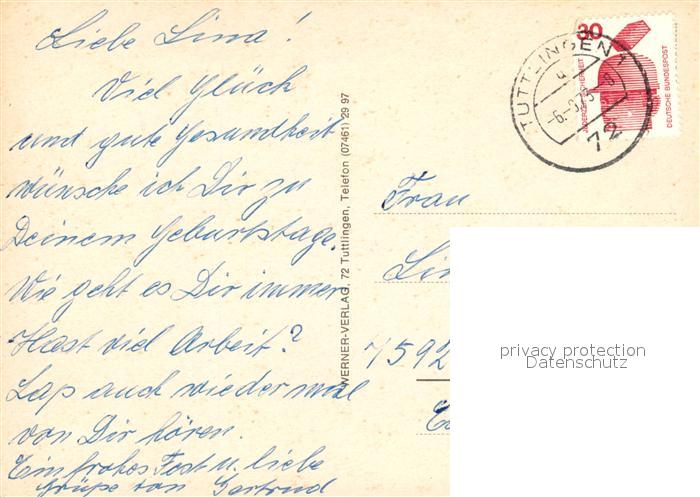 Liebe Lina!
Viel Glück
und gute Gesundheit
wünsche ich Dir zu
Deinem Geburtstage.
Wie geht es Dir immer
Hast viel Arbeit?
Lap auch wieder mal
von Dir hören.
Ein frohes Fest u. liebe
Grüße von Gertrud
WERNER-VERLAG, 72 Tuttlingen, Telefon (07461) 29 97
30
JEDERZEIT SICHERHEIT
DEUTSCHE BUNDESPOST
TUTTLINGEN 1
72
Frau
7592
privacy protection
Datenschutz